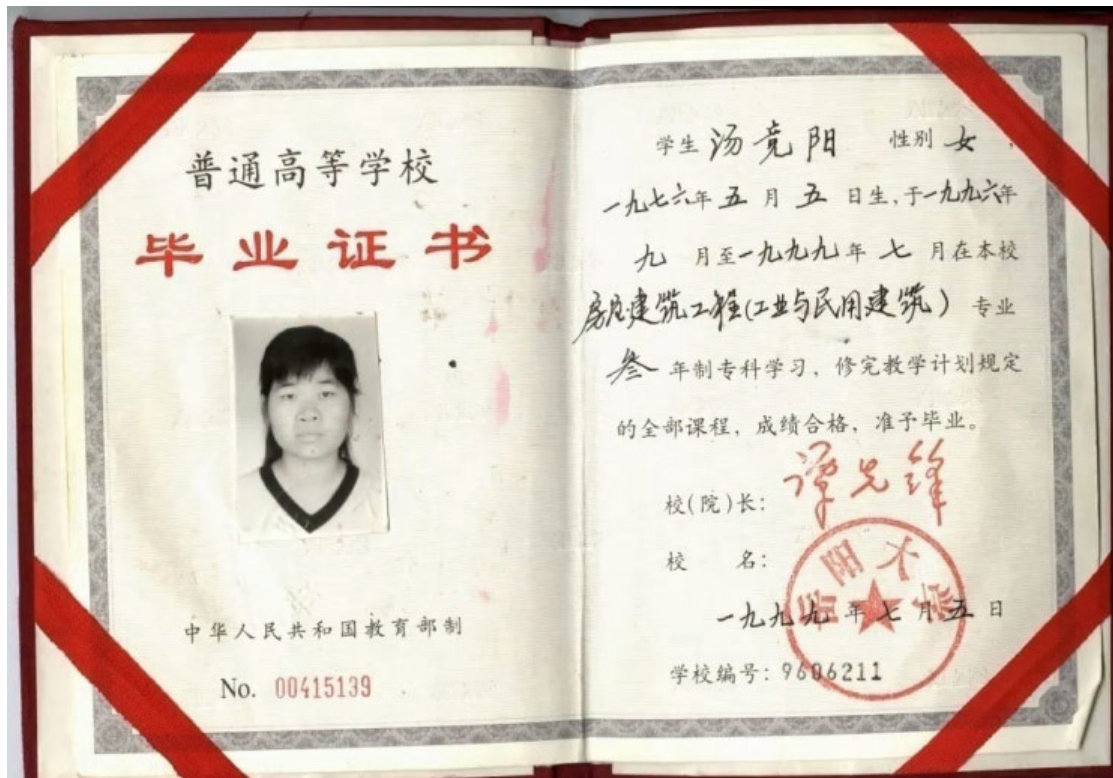 普通高等学校
毕业证书
中华人民共和国教育部制
No. 00415139
学生 汤竞阳 性别 女，
一九七六年五月五日生，于一九九六年
九月至一九九九年七月在本校
房屋建筑工程(工业与民用建筑)专业
叁年制专科学习，修完教学计划规定
的全部课程，成绩合格，准予毕业。
校(院)长：谭先锋
校 名：
岳阳大学
一九九九年七月五日
学校编号：9606211